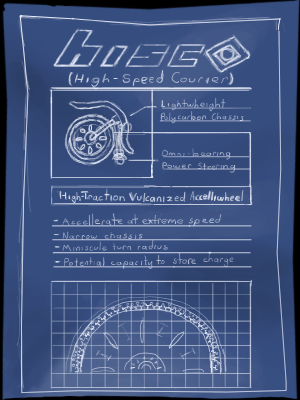 HISCO
(High-Speed Courier)
Lightweight
Polycarbon Chassis
Omni-bearing
Power Steering
High-Traction Vulcanized Accelliwheel
- Accellerate at extreme speed
- Narrow chassis
- Miniscule turn radius
- Potential capacity to store charge